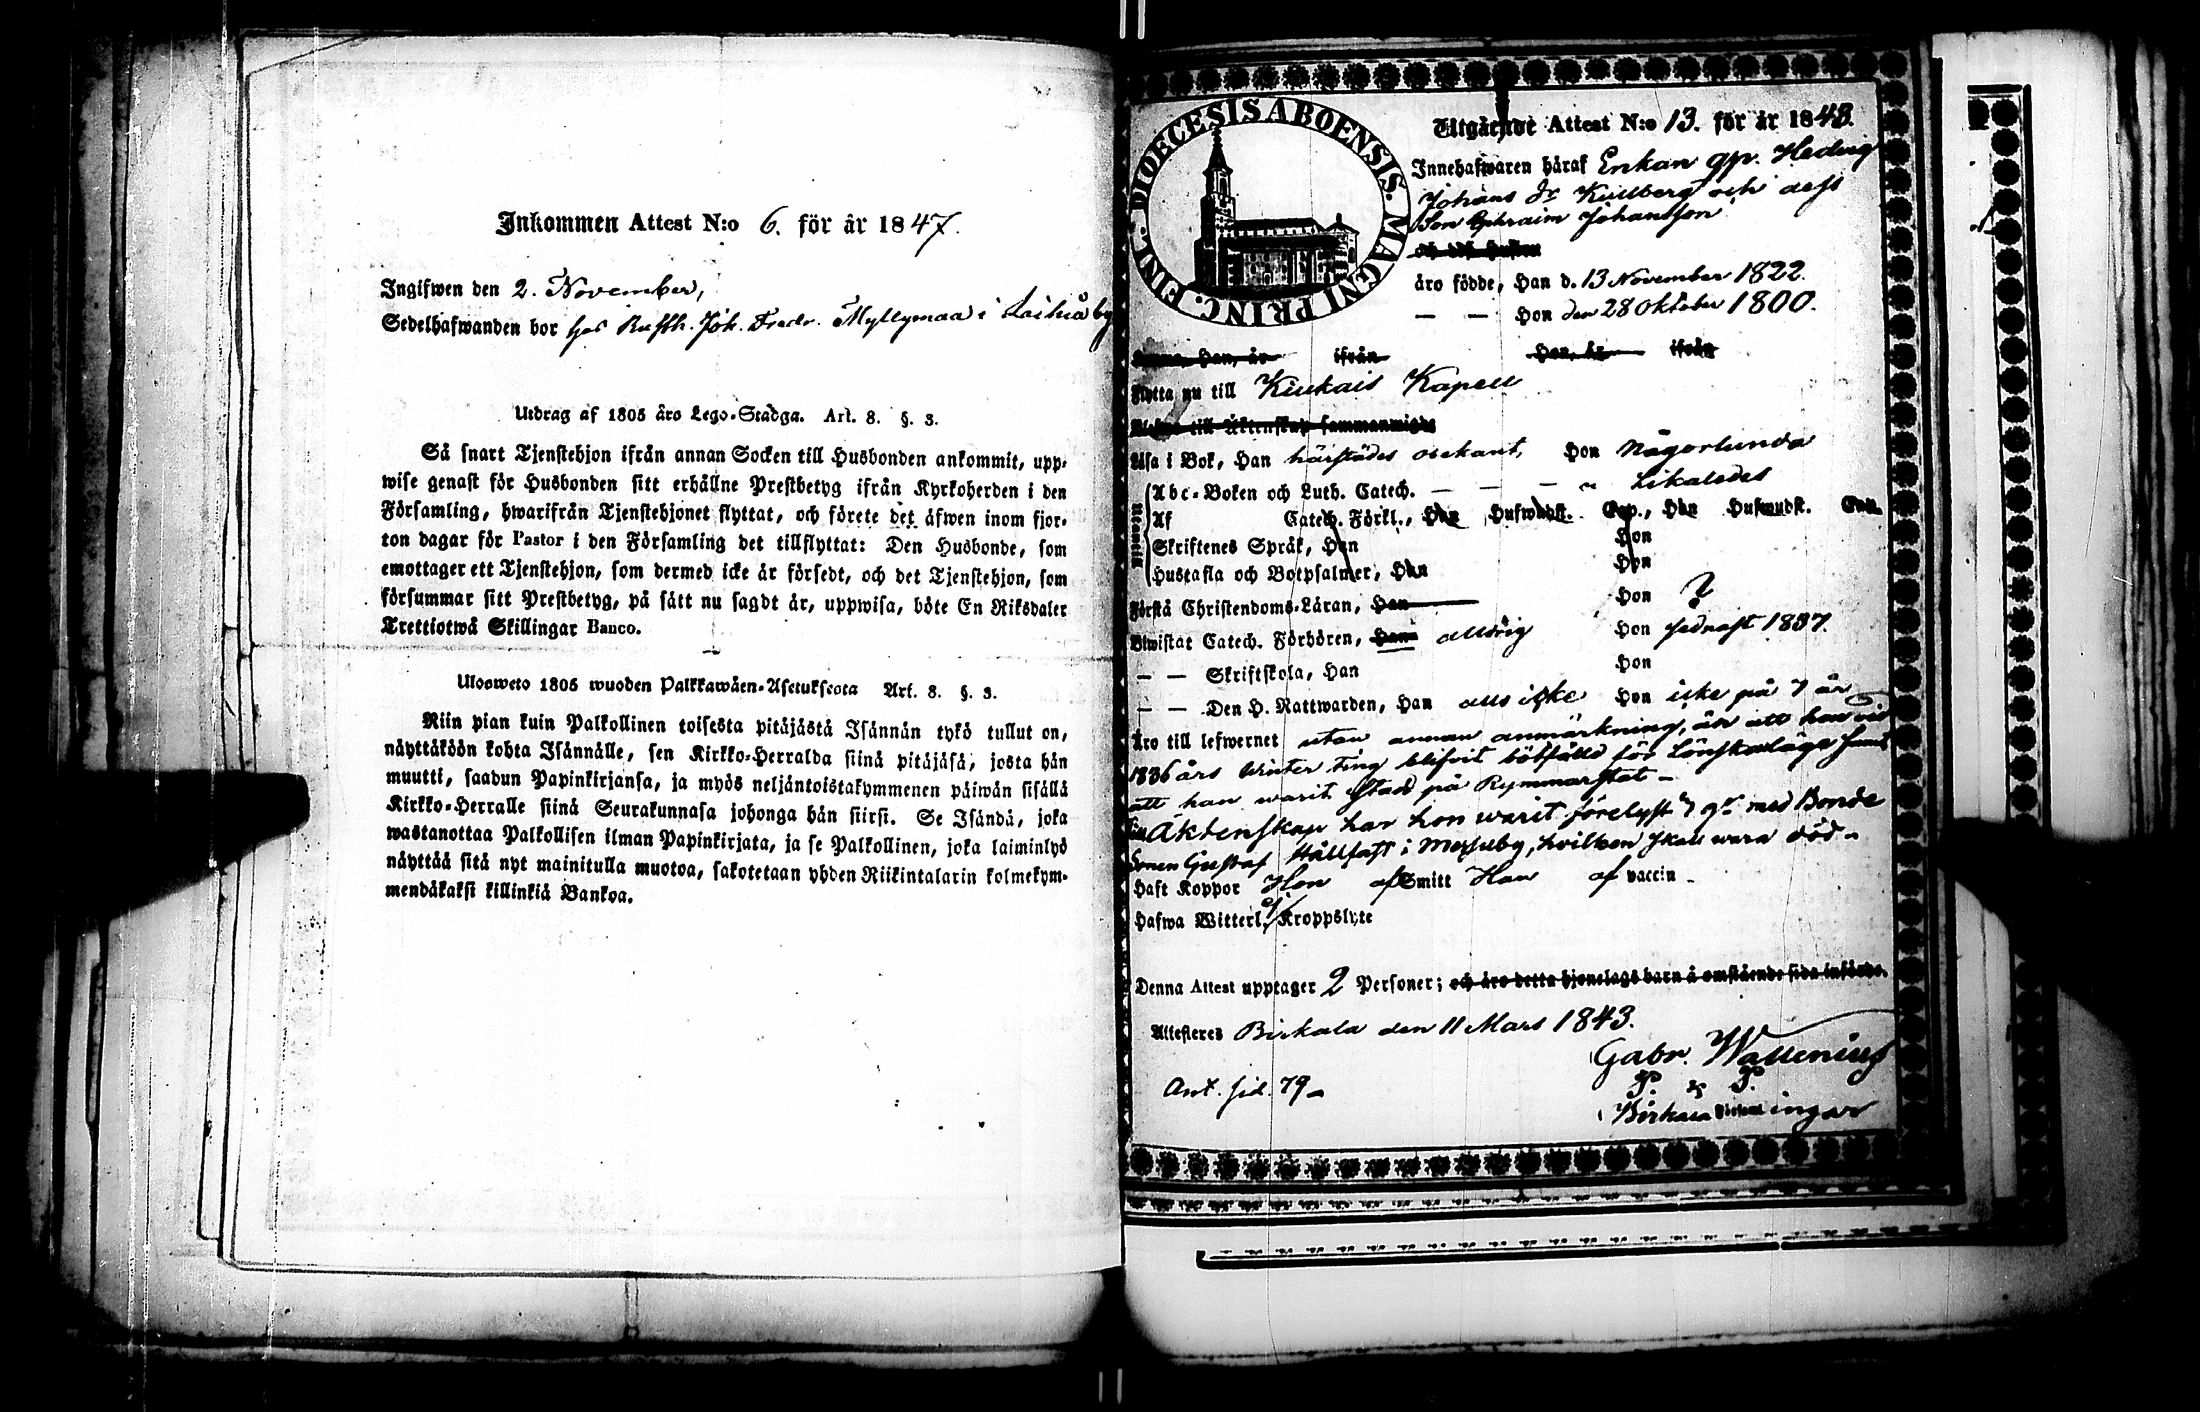 Inkommen Attest N:o 6. för år 1847.
Ingifwen den 2. November,
Sedelhafwanden bor hos Rusth. Joh. Fredr. Myllymaa i Laihia by
Utdrag af 1805 åro Lego-Stadga. Art. 8. §. 3.
Så snart Tjenstehjon ifrån annan Socken till Husbonden ankommit, upp-
wise genast för Husbonden sitt erhållne Prestbetyg ifrån Kyrkoherden i den
Församling, hwarifrån Tjenstehjonet flyttat, och förete det äfwen inom fjor-
ton dagar för Pastor i den Församling det tillflyttat: Den Husbonde, som
emottager ett Tjenstehjon, som dermed icke är försedt, och det Tjenstehjon, som
försummar sitt Prestbetyg, på sätt nu sagdt är, uppwisa, böte En Riksdaler
Trettiotwå Skillingar Banco.
Ulosweto 1805 wuoden Palkkawäen-Asetuksesta Art. 8. §. 3.
Niin pian kuin Palkollinen toisesta pitäjästä Isännän tykö tullut on,
näyttäköön kohta Isännälle, sen Kirkko-Herralda siinä pitäjäsä, josta hän
muutti, saadun Papinkirjansa, ja myös neljäntoistakymmenen päiwän sisällä
Kirkko-Herralle siinä Seurakunnasa johonga hän siirsi. Se Isändä, joka
wastanottaa Palkollisen ilman Papinkirjata, ja se Palkollinen, joka laiminlyö
näyttää sitä nyt mainitulla muotoa, sakotetaan yhden Riikintalarin kolmekym-
mendäkaksi killinkiä Bankoa.
DIOECESIS ABOENSIS. MAGNI PRINC. FINL.
Utgående Attest N:o 13. för år 1843.
Innehafwaren häraf Enkan qp. Hedvig
Johans dr Kullberg och dess
Son Ephraim Johansson
och dess Hustru
äro födde, Han d. 13 November 1822.
— — Hon den 28 Oktober 1800.
Han, år ifrån Hon, år ifrån
Flytta nu till Kiukais Kapell
till Äktenskap sammanwigde
Läsa i Bok, Han härstädes obekant, Hon någorlunda
Abc-Boken och Luth. Catech. — — — " Likaledes
Utantill
Af Catech. Förkl., Han Hufwudst. Cap., Hon Hufwudst. Cap.
Skriftenes Språk, Han Hon
Hustafla och Botpsalmer, Han Hon
Förstå Christendoms-Läran, Han Hon ?
Biwistat Catech. Förhören, Han aldrig Hon sednast 1837.
— — Skriftskola, Han Hon
— — Den H. Nattwarden, Han alls icke Hon icke på 7 år
Äro till lefwernet utan annan anmärkning, än att hon vid
1836 års Winter ting blifvit bötfälld för Lönskaläge samt
att han warit Stadd på Rymmarstat —
Till Äktenskap har hon warit förelyst 7 gr med Bonde
Sonen Gustaf Hållfast i Messuby, hvilken skall wara död —
Haft Koppor Hon af Smitt Han af vaccin —
Hafwa Witterl. ej Kroppslyte
Denna Attest upptager 2 Personer; och äro detta hjonelags barn å omstående sida införde.
Attesteres Birkala den 11 Mars 1843.
Gabr. Wallenius
P. & P.
Ant. sid. 79 —